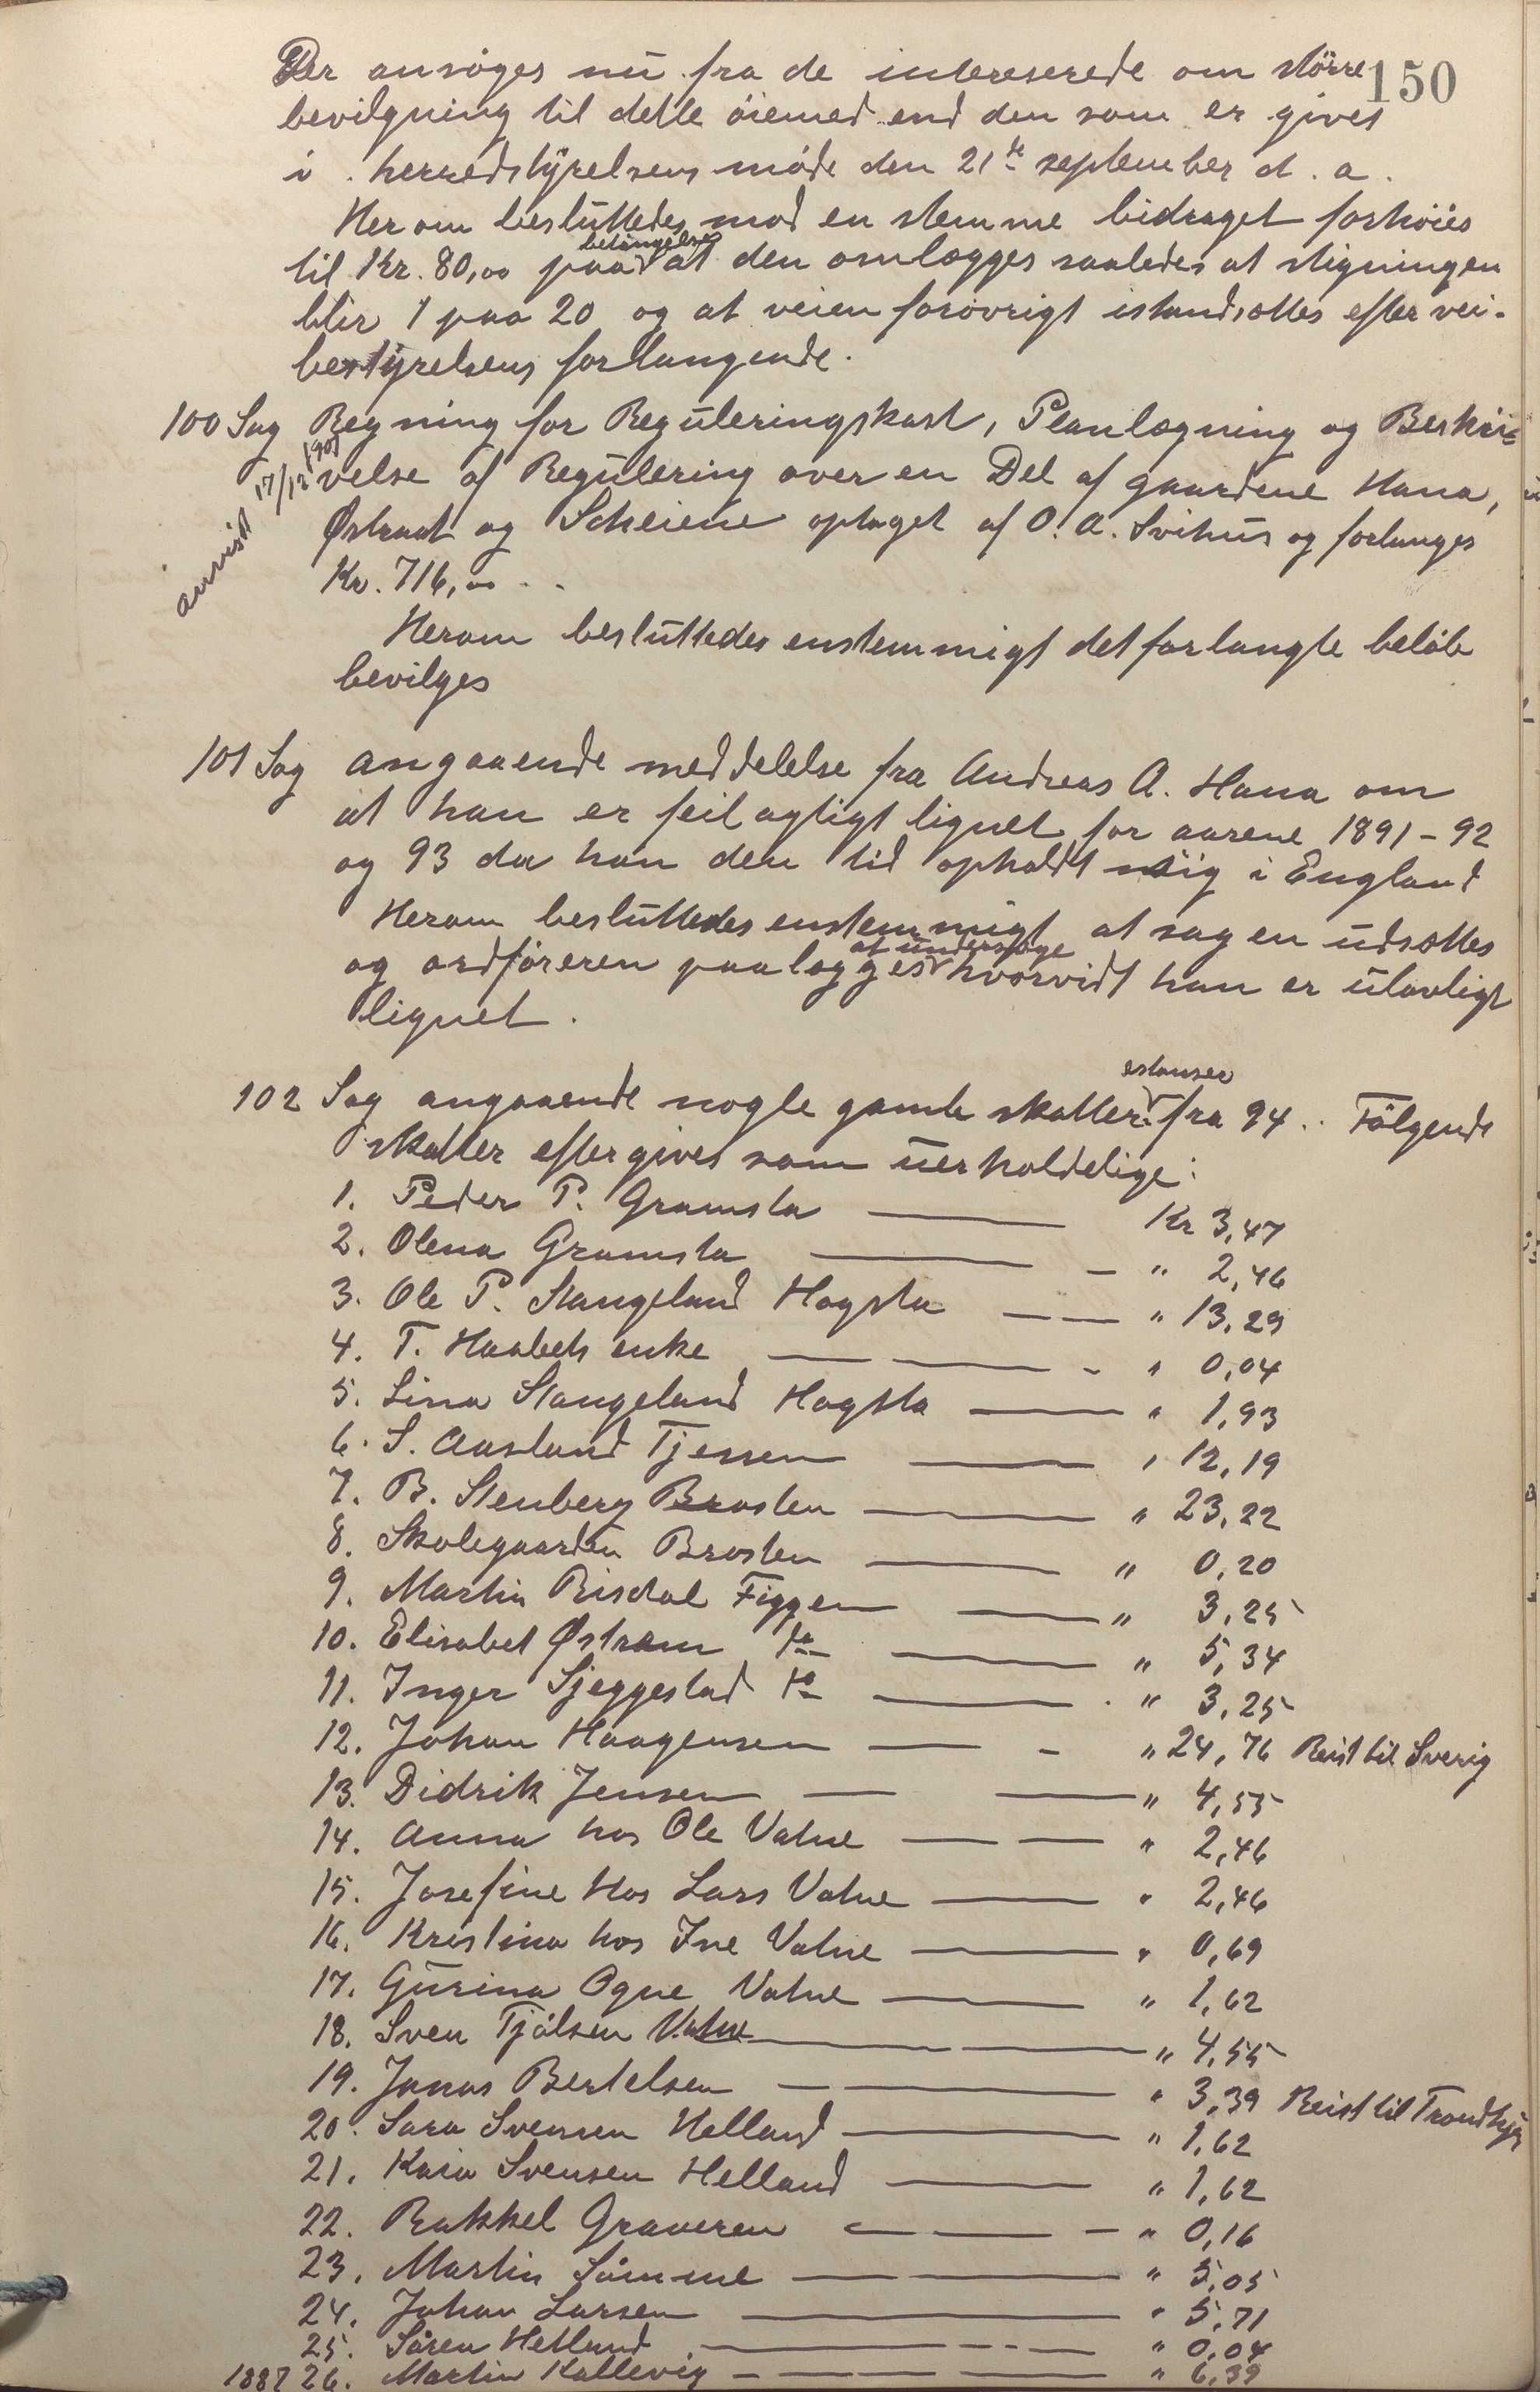 150
Der ansöges nu fra de intereserede om större
bevilgning til dette öiemed end den som er givet
i herredstyrelsens möde den 21de september d. a.
Her om besluttedes mod en stemme bidraget forhöies
betingelse
til Kr. 80,00 paa at den omlægges saaledes at stigningen
blir 1 paa 20 og at veien forövrigt istandsættes efter vei-
bestyrelsens forlangende.
100 Sag Regning for Reguleringskart, Planlægning og Beskri-
velse af Regulering over en Del af gaardene Hana,
Østraat og Scheiene optaget af O. A. Svihus og forlanges
Kr. 716,00
anvist 17/12 1901
Herom besluttedes enstemmigt det forlangte belöb
bevilges
101 Sag angaaende meddelelse fra Andreas A. Hana om
at han er feilagtigt lignet for aarene 1891-92
og 93 da han den tid opholdt sig i England
Herom besluttedes enstemmigt at sagen udsættes
at undersöge
og ordföreren paalægges hvorvidt han er ulovligt
lignet.
restanser
102 Sag angaaende nogle gamle skatter fra 94. Fölgende
skatter eftergives som uerholdelige:
1. Peder P. Gramsta Kr 3,47
2. Olena Gramsta " 2,46
3. Ole P. Stangeland Hogsta " 13,29
4. T. Haabets enke " 0,04
5. Lina Stangeland Hogsta " 1,93
6. S. Aasland Tjessem " 12,19
7. B. Stenberg Brosten " 23,22
8. Skolegaarden Brosten " 0,20
9. Martin Risdal Figgen " 3,25
10. Elisabet Østrem do " 5,34
11. Inger Sjeggestad do " 3,25
12. Johan Haagensen " 24,76 Reist til Sverig
13. Didrik Jensen " 4,55
14. Anna hos Ole Vatne " 2,46
15. Josefine hos Lars Vatne " 2,46
16. Kristina hos Ine Vatne " 0,69
17. Gurina Ogne Vatne " 1,62
18. Sven Tjölsen Vatne " 4,55
19. Jonas Bertelsen " 3,39 Reist til Trondhjem
20. Sara Svensen Helland " 1,62
21. Kaia Svensen Helland " 1,62
22. Rakkel Graveren " 0,16
23. Martin Sömme " 5,05
24. Johan Larsen " 5,71
25. Sören Hetland " 0,04
1887 26. Martin Kallevig " 6,39